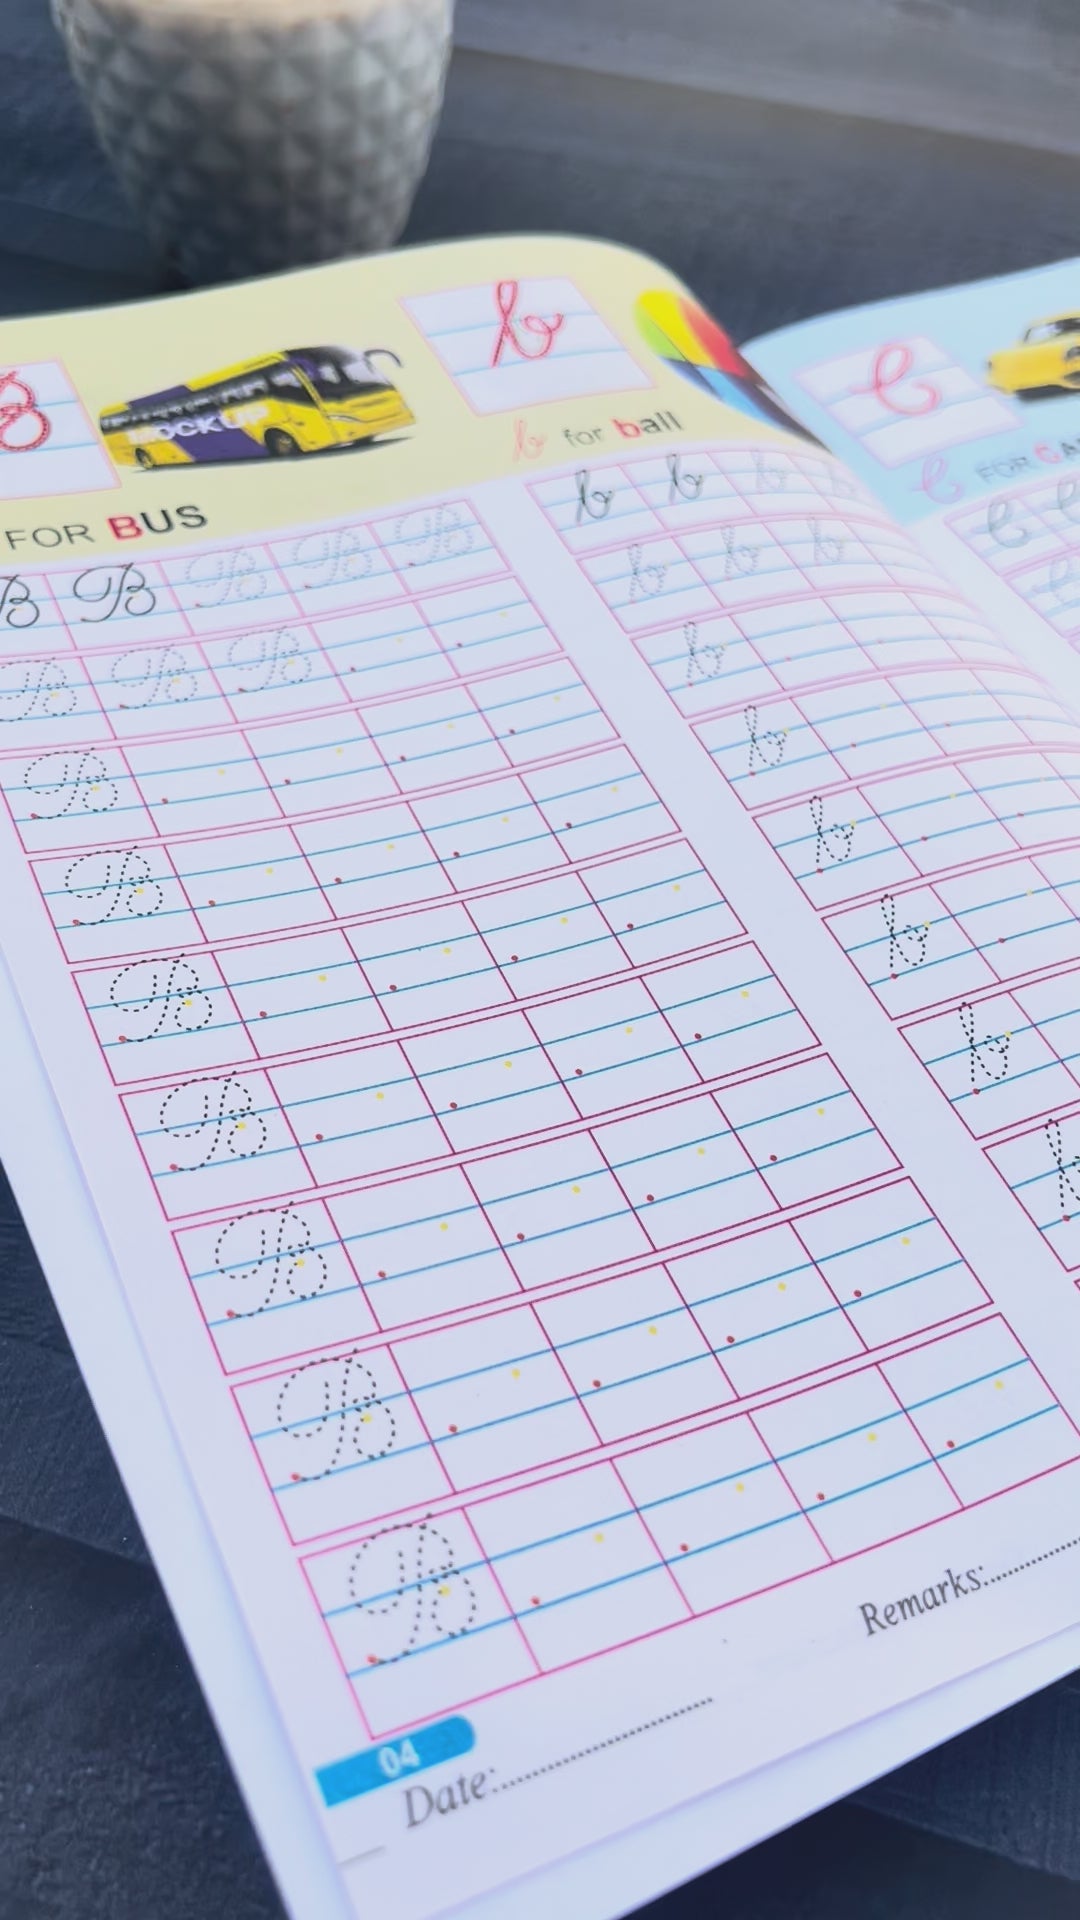 B
MOCKUP
b
b for ball
FOR BUS
C
C FOR CAR
B B B B B
B B B
B
B
B
B
B
B
B
b b b b
b b b
b
b
b
b
b
b
C C
C
Remarks:
04
Date: